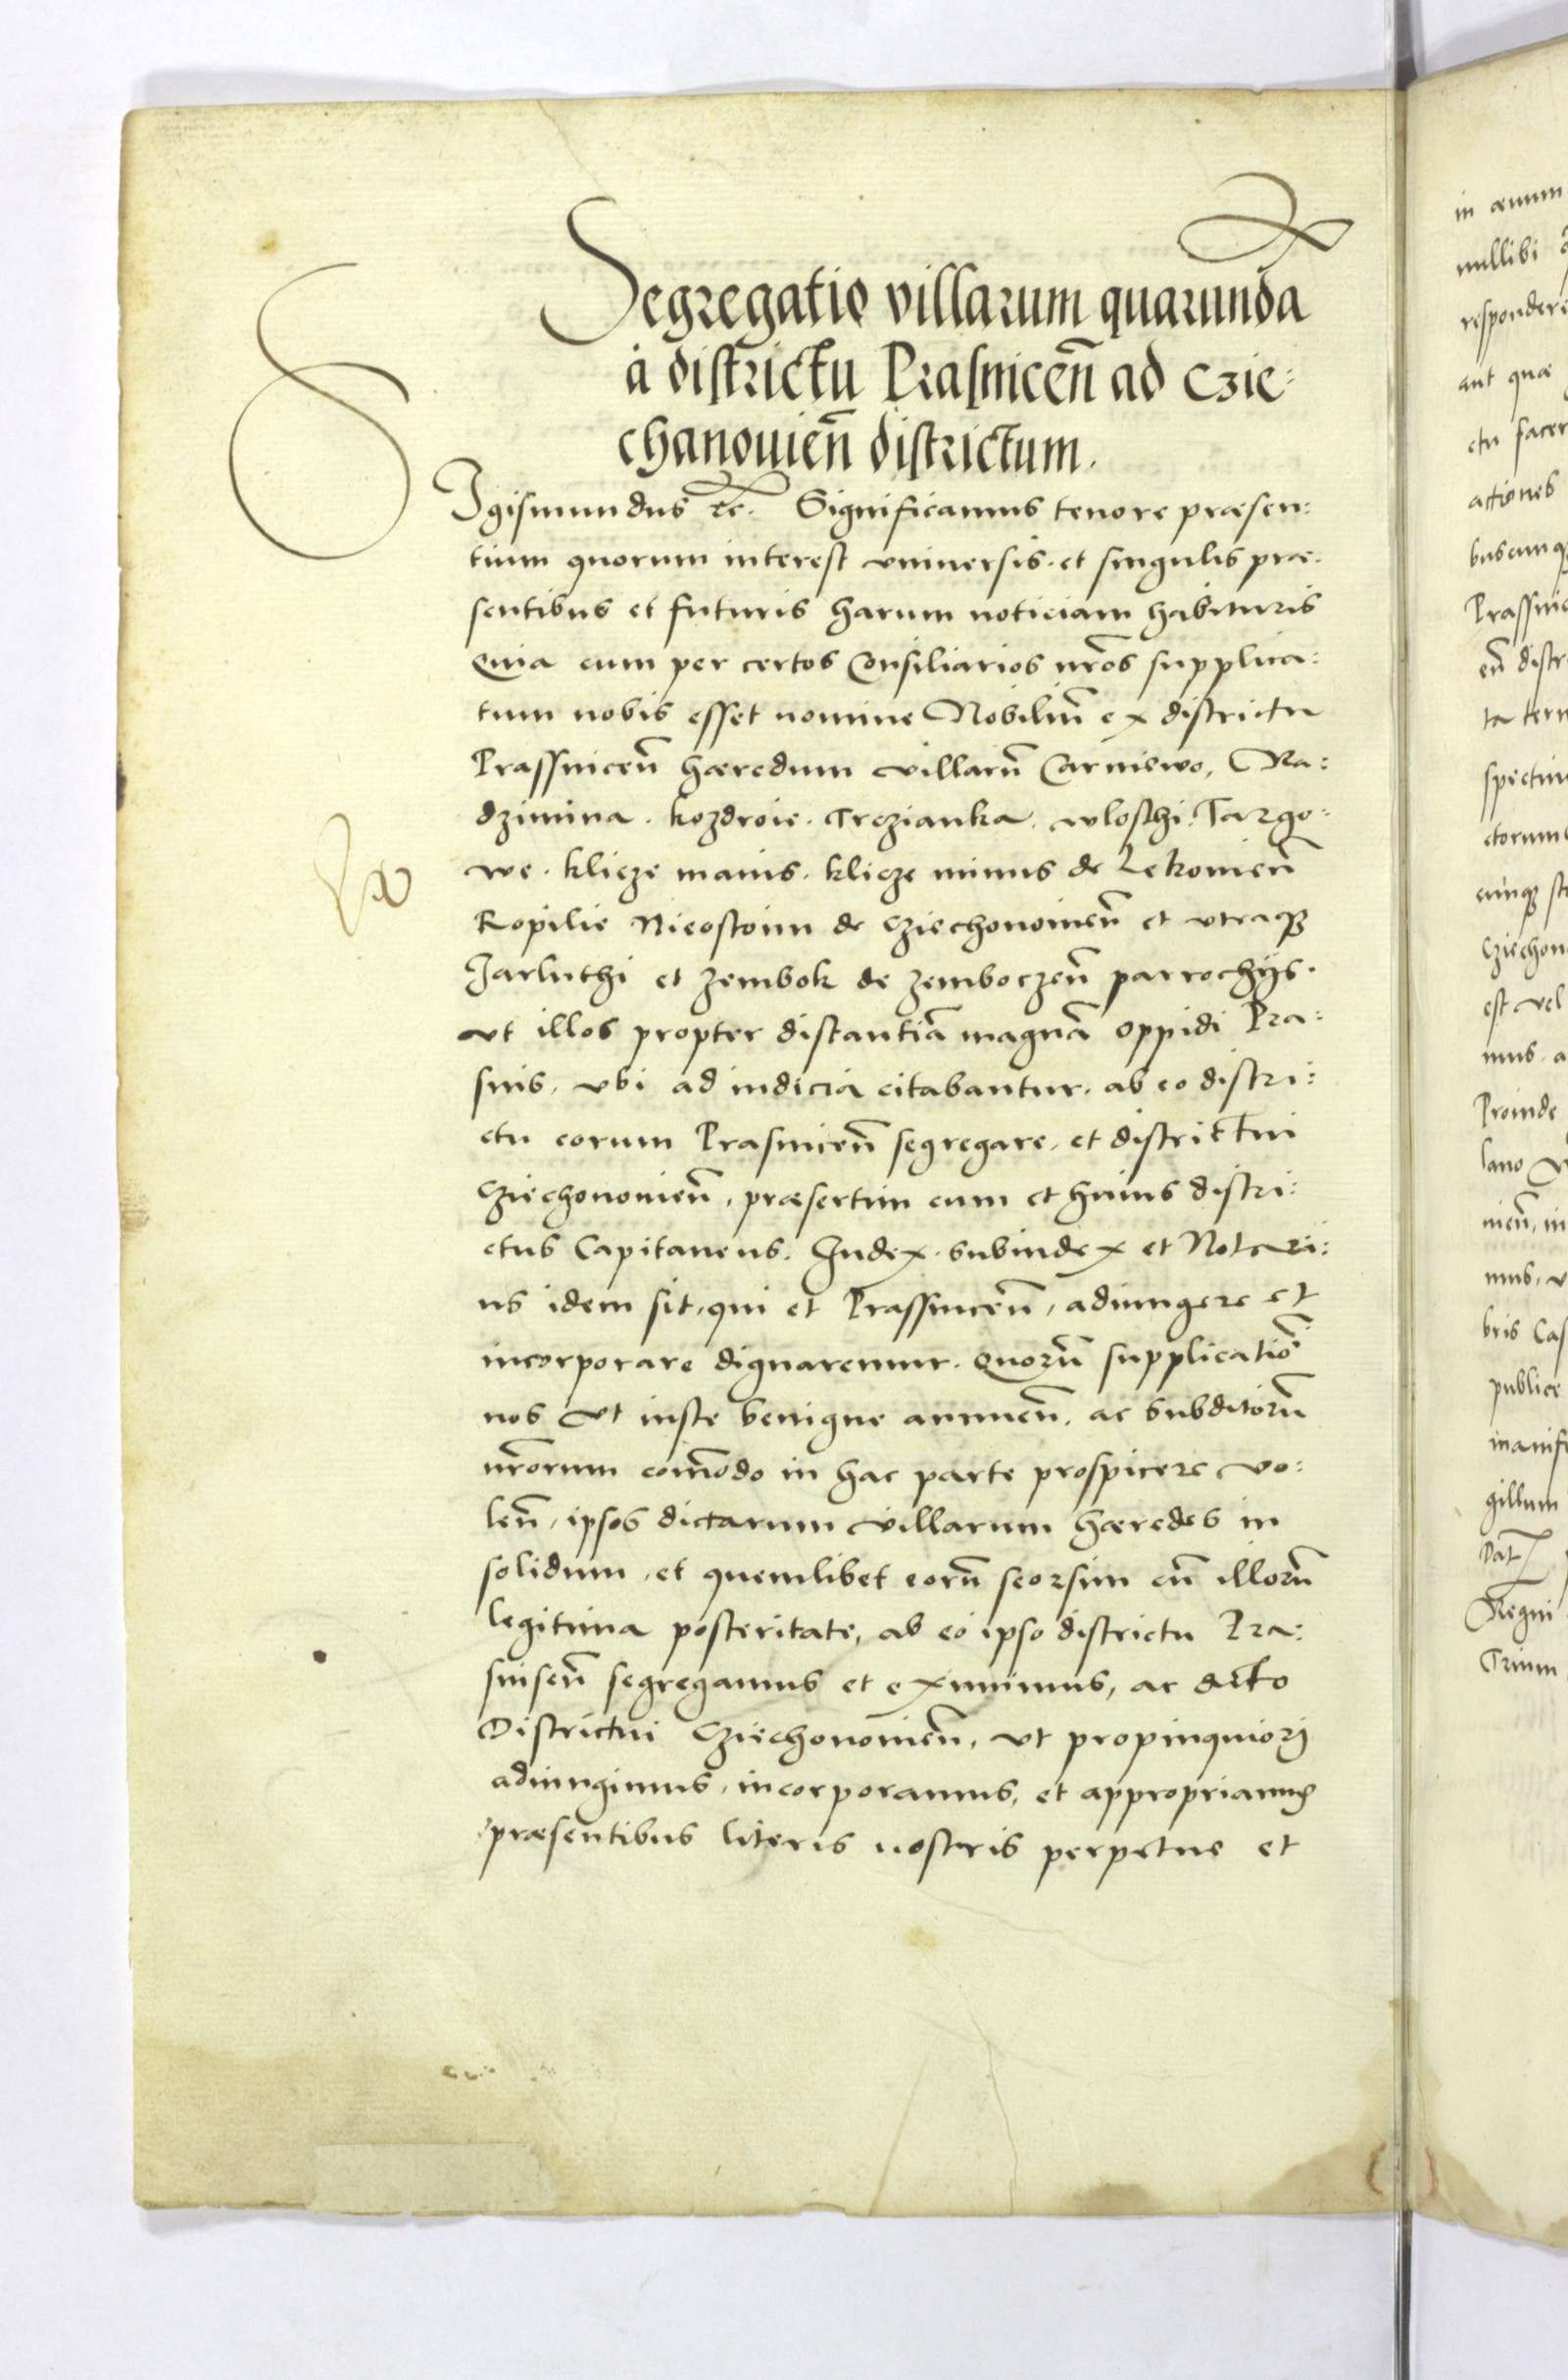 Segregatio villarum quarundā
à districtu Prasnicen̄ ad Czie:
chanouien̄ districtum.
SIgismundus etc. Significamus tenore præsen:
tium quorum interest vniuersis et singulis præ:
sentibus et futuris harum noticiam habituris
Quia cum per certos Consiliarios nr̄os supplica:
tum nobis esset nomine Nobiliū ex districtu
Prassnicen̄ hæredum villarū Carniewo, Ra:
dzimina. Kozdroie. Trczianka. wloschi. Targo:
we. kliczе maius. klicze minus de Lekowien̄
Kopilie Nieostoiim de Cziechonouien̄ et vtraqꝫ
Jarluthi et Zembok de Zemboczen̄ parrochijs.
vt illos propter distantiā magnā oppidi Pra:
snis, vbi ad iudicia citabantur, ab eo distri:
ctu eorum Prasnicen̄ segregare, et districtui
Cziechonouien̄, præsertim cum et huius distri:
ctus Capitaneus. Iudex. subiudex et Notari:
us idem sit, qui et Prassnicen̄, adiungere et
incorporare dignaremur. Quorū supplicatiō
nos vt iuste benigne annuen̄. ac subditorū
nr̄orum com̄odo in hac parte prospicere vo:
len̄, ipsos dictarum villarum hæredes in
solidum, et quemlibet eorū seorsim cū illorū
legitima posteritate, ab eo ipso districtu Pra:
snisen̄ segregamus et eximimus, ac dicto
Districtui Cziechonouien̄, vt propinquiori
adiungimus, incorporamus, et appropriamus
præsentibus literis nostris perpetue et
in æuum
nullibi
respondere
aut quæ
ctu facer
actiones
buscunqꝫ
Prassnic
en̄ distr
ta terr
spectiu
ctorum
cunqꝫ
Cziechon
est vel
mus. a
Proinde
lano
uien̄, in
mus, v
bris Cas
publice
manife
gillum
Dat
Regni
Trium